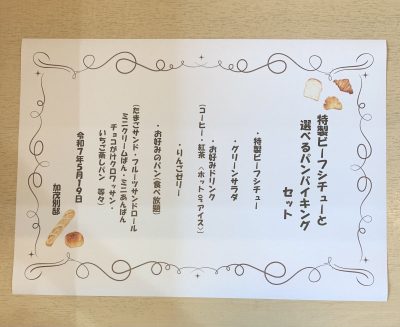 特製ビーフシチューと
選べるパンバイキング
セット
・特製ビーフシチュー
・グリーンサラダ
・お好みドリンク
(コーヒー・紅茶 (ホットorアイス))
・りんごゼリー
・お好みのパン(食べ放題)
(たまごサンド・フルーツサンドロール
ミニクリームぱん・ミニあんぱん
チョコがけクロワッサン・
いちご蒸しパン 等々)
令和7年5月19日